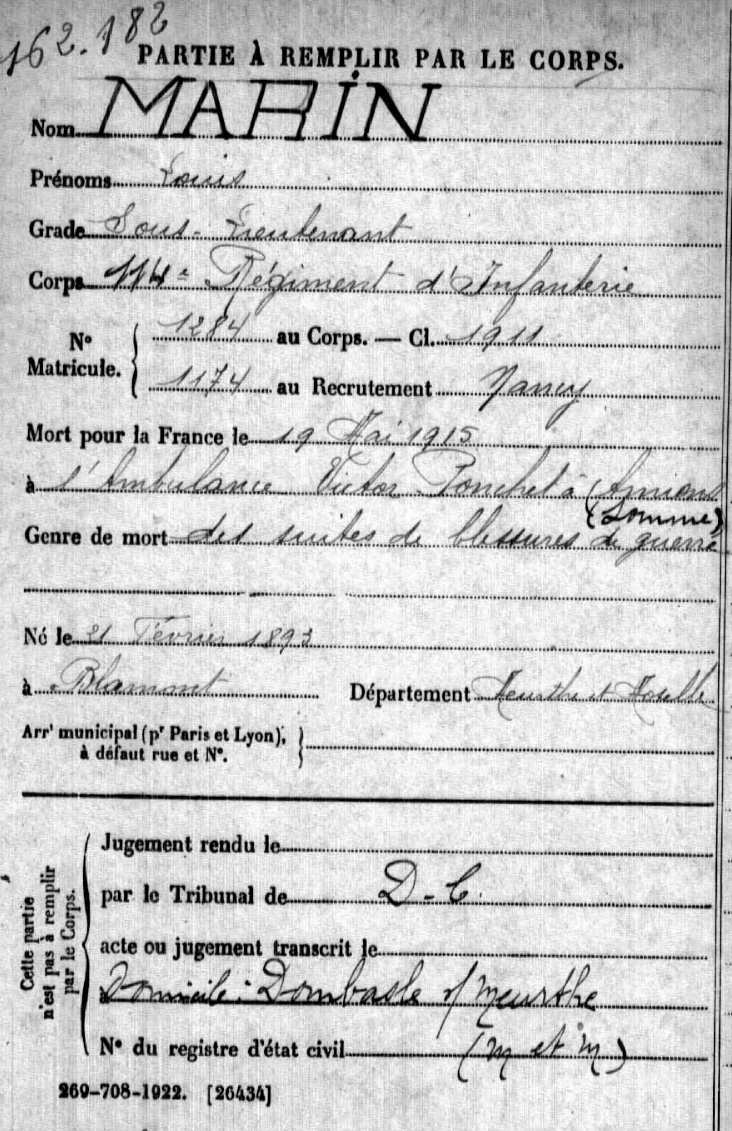 162.182
PARTIE À REMPLIR PAR LE CORPS.
Nom MARIN
Prénoms Louis
Grade Sous-Lieutenant
Corps 114e Régiment d'Infanterie
N° Matricule. 1284 au Corps. — Cl. 1911
1174 au Recrutement Nancy
Mort pour la France le 19 Mai 1915
à l'Ambulance Victor Pouchet à Amiens
(Somme)
Genre de mort des suites de blessures de guerre
Né le 21 Février 1893
à Blamont Département Meurthe et Moselle
Arrt municipal (pr Paris et Lyon),
à défaut rue et N°.
Cette partie n'est pas à remplir par le Corps.
Jugement rendu le
par le Tribunal de D-C.
acte ou jugement transcrit le
à Domicile: Dombasle s/ Meurthe
N° du registre d'état civil (M et M)
269-708-1922. [26434]